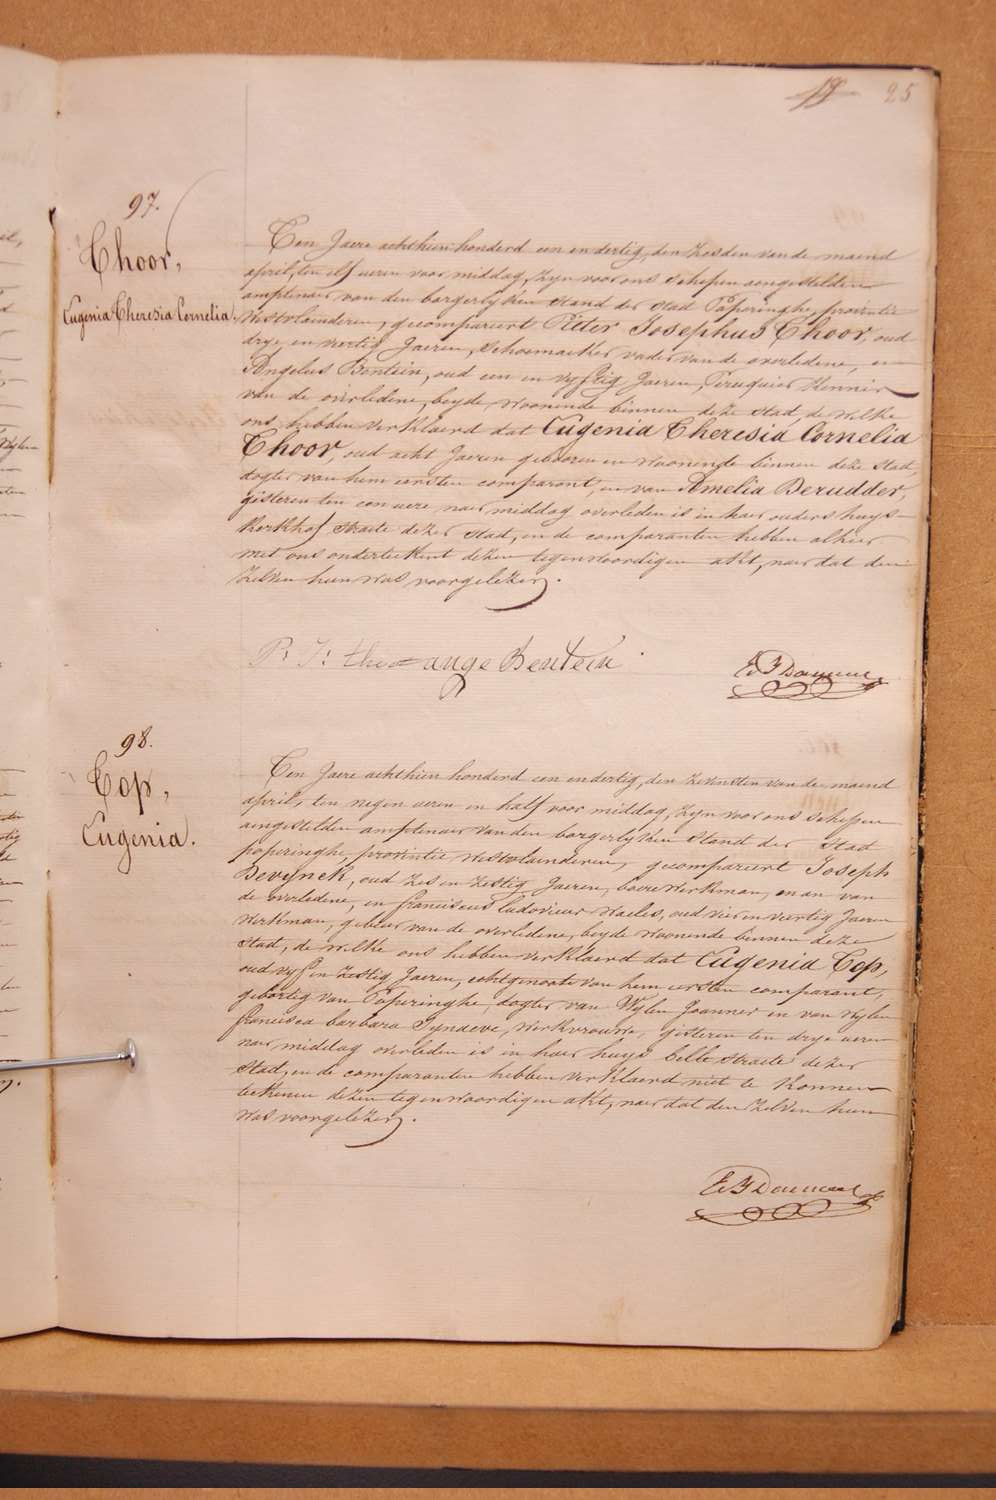 25
97.
Thoor,
Eugenia Theresia Cornelia.
Ten Jaere achthien honderd een en dertig, den zesden van de maend
april, ten elf ueren voor middag, zyn voor ons schepen aengestelden
amptenaer van den borgerlyken stand der stad Poperinghe, provintie
Westvlaenderen, gecompareert Pieter Josephus Thoor, oud
drye en veertig Jaeren, schoemaeker vader van de overledene, en
Angelus Bentein, oud een en vyftig Jaeren, Peruquier
van de overledene, beyde woonende binnen deze stad, de welke
ons hebben verklaerd dat Eugenia Theresia Cornelia
Thoor, oud acht Jaeren gebooren en woonende binnen deze stad,
dogter van hem eersten comparant, en van Amelia Derudder,
gisteren ten een uere naer middag overleden is in haer ouders huys
Kerkhof straete dezer stad, en de comparanten hebben alhier
met ons onderteekent dezen tegenwoordigen akt, naer dat den
zelven hun was voorgelezen.
P: J: Thoor ange Bentein
98.
Top,
Eugenia.
Ten Jaere achthien honderd een en dertig, den zevensten van de maend
april, ten negen ueren en half voor middag, zyn voor ons schepen
aengestelden amptenaer van den borgerlyken stand der stad
poperinghe, provintie westvlaenderen, gecompareert Joseph
Devynck, oud zes en zestig Jaeren, boerewerkman, man van
de overledene, en franciscus Ludovicus Maeles, oud vier en veertig Jaeren
werkman, gebuer van de overledene, beyde woonende binnen deze
stad, de welke ons hebben verklaerd dat Eugenia Top,
oud vyf en zestig Jaeren, echtgenoote van hem eersten comparant,
gebortig van Poperinghe, dogter van Wylen Joannes en van wylen
francisca barbara Tyndeve, werkvrouwe, gisteren ten drye ueren
naer middag overleden is in haer huys belle straete dezer
stad, en de comparanten hebben verklaerd niet te konnen
teekenen dezen tegenwoordigen akt, naer dat den zelven hun
was voorgelezen.